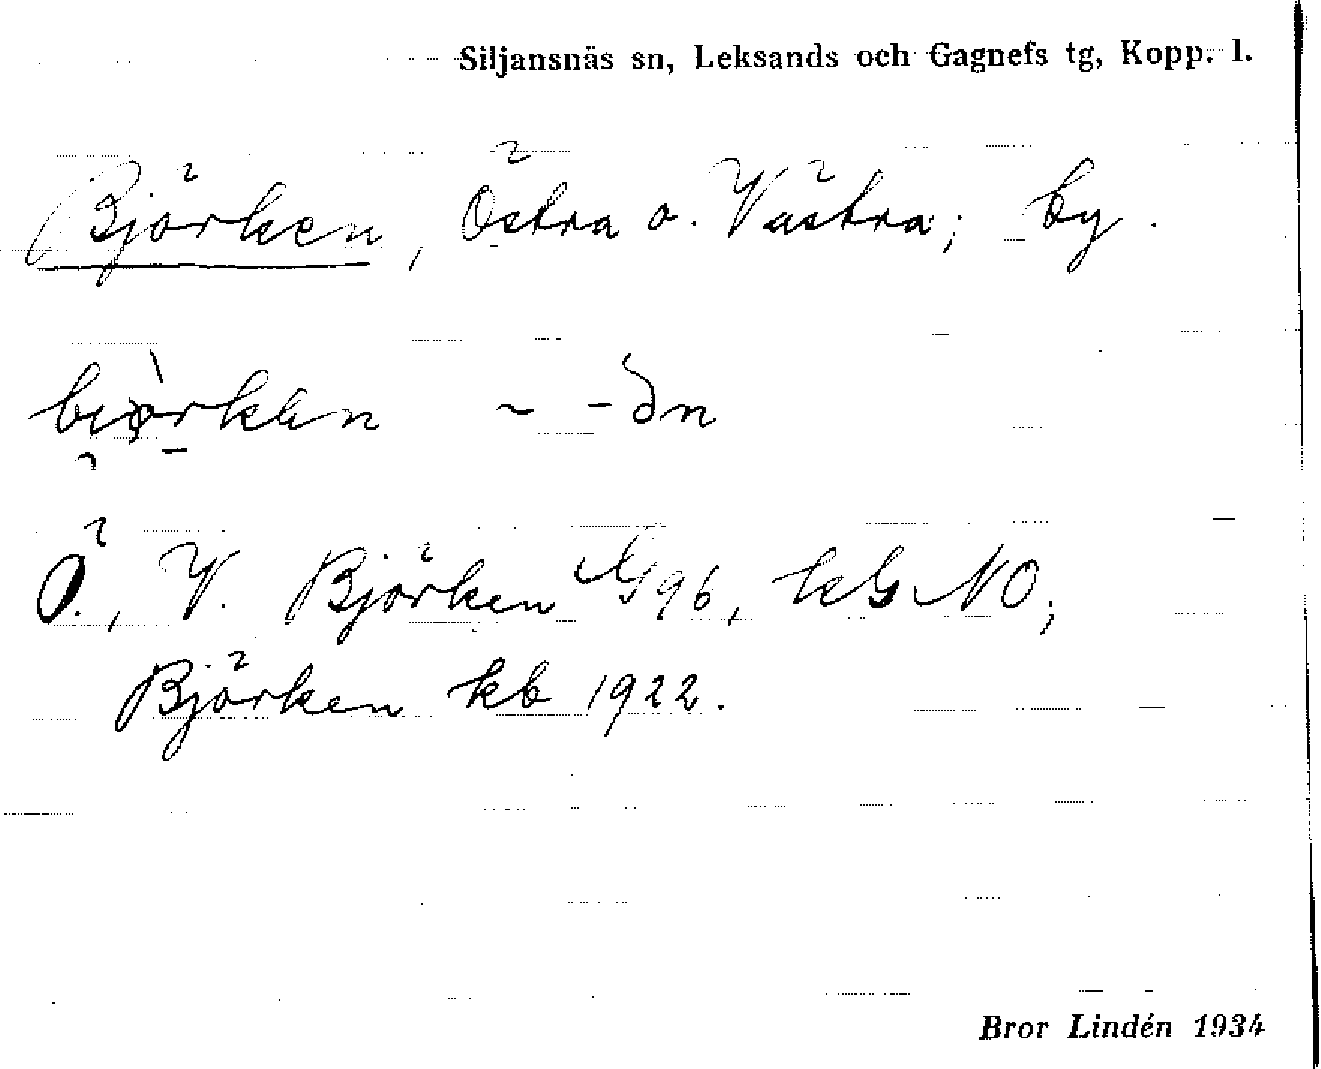 Siljansnäs sn, Leksands och Gagnefs tg, Kopp. l.
Björken, Östra o. Västra; by.
Ö., V. Björken 96, NO;
Björken kb 1922.
Bror Lindén 1934